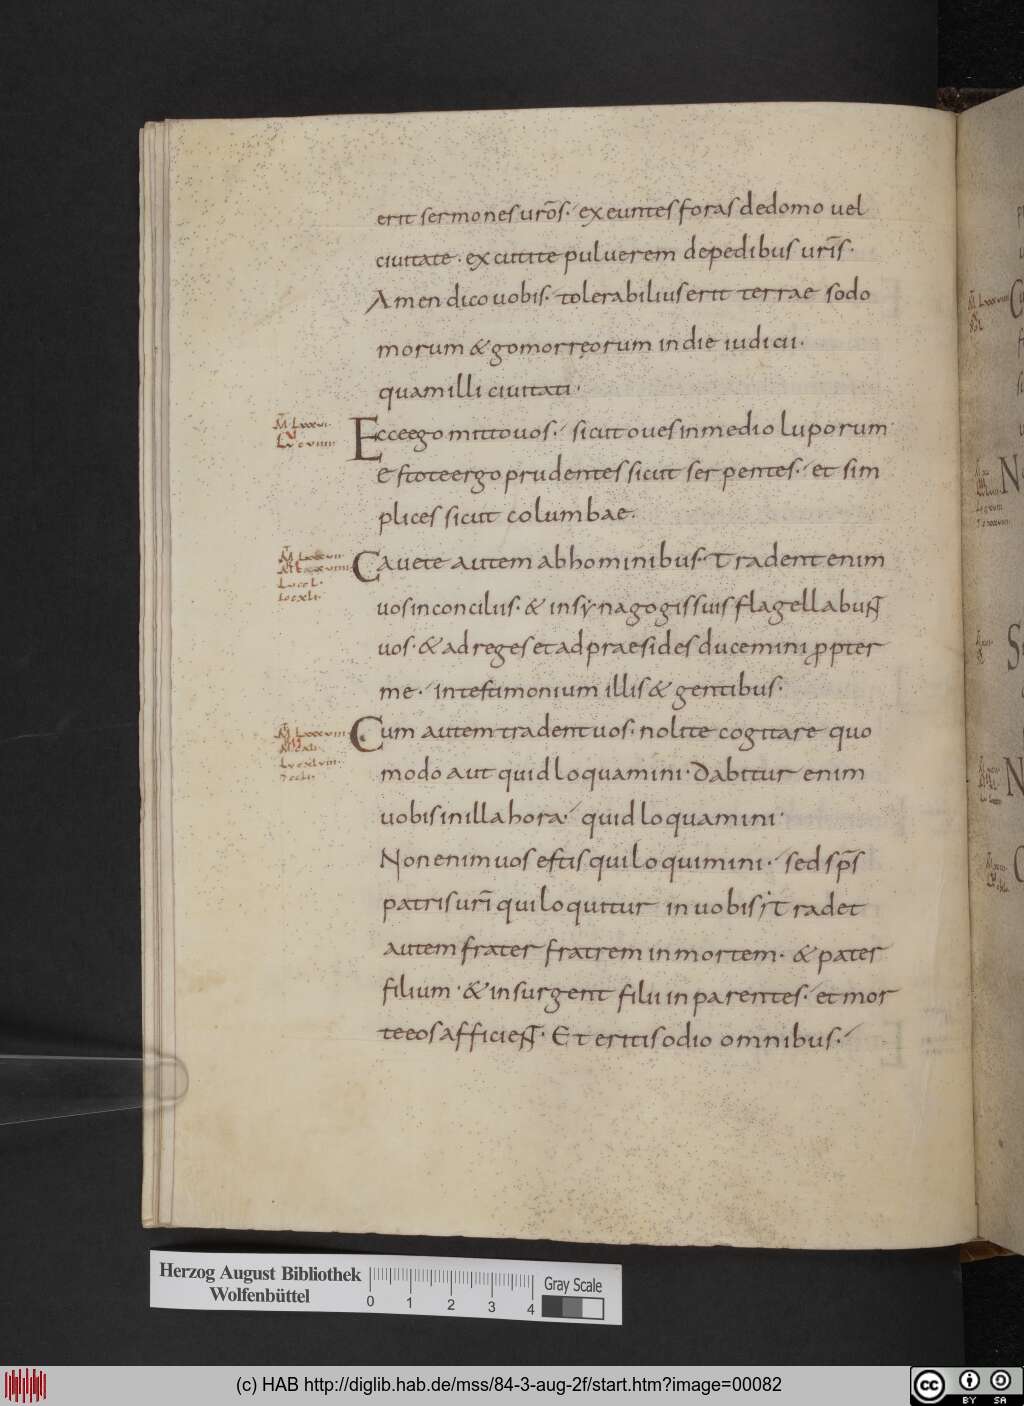 erit sermones urōs· exeuntes foras de domo uel
ciuitate · excutite puluerem de pedibus urīs·
Amen dico uobis· tolerabilius erit terrae sodo
morum & gomorręorum in die iudicii·
quam illi ciuitati·
Ecce ego mitto uos· sicut oues in medio luporum
Estote ergo prudentes sicut serpentes· et sim
plices sicut columbae·
Cauete autem ab hominibus· Tradent enim
uos in conciliis· & in synagogis suis flagellabunt
uos· & ad reges et ad praesides ducemini ꝓpter
me· in testimonium illis & gentibus·
Cum autem tradent uos· nolite cogitare quo
modo aut quid loquamini· Dabitur enim
uobis in illa hora· quid loquamini·
Non enim uos estis qui loquimini· sed sp̄s
patris urī qui loquitur in uobis· Tradet
autem frater fratrem in mortem· & pater
filium· & insurgent filii in parentes· et mor
te eos afficient· Et eritis odio omnibus·
Herzog August Bibliothek
Wolfenbüttel
0 1 2 3 4
Gray Scale
(c) HAB http://diglib.hab.de/mss/84-3-aug-2f/start.htm?image=00082
cc BY SA